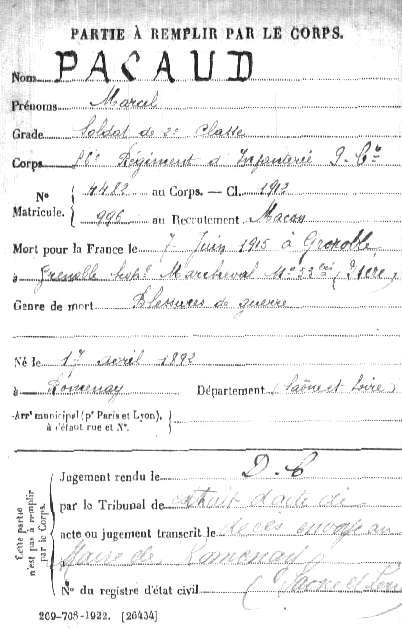 PARTIE À REMPLIR PAR LE CORPS.
Nom PACAUD
Prénoms Marcel
Grade Soldat de 2e Classe
Corps Régiment d'Infanterie
N° Matricule. { 4482 au Corps. — Cl. 1912
996 au Recrutement Macon
Mort pour la France le 7 Juin 1915 à Grenoble
à Grenoble (Isère)
Genre de mort Blessures de guerre
Né le 17 avril 1892
à Romenay Département (Saône et Loire)
Arrt municipal (pr Paris et Lyon),
à défaut rue et N°.
Cette partie
n'est pas à remplir
par le Corps.
Jugement rendu le D. C
par le Tribunal de extrait d'acte de
acte ou jugement transcrit le décès envoyé au
Maire de Romenay
N° du registre d'état civil (Saône et Loire
269-708-1922. [26434]